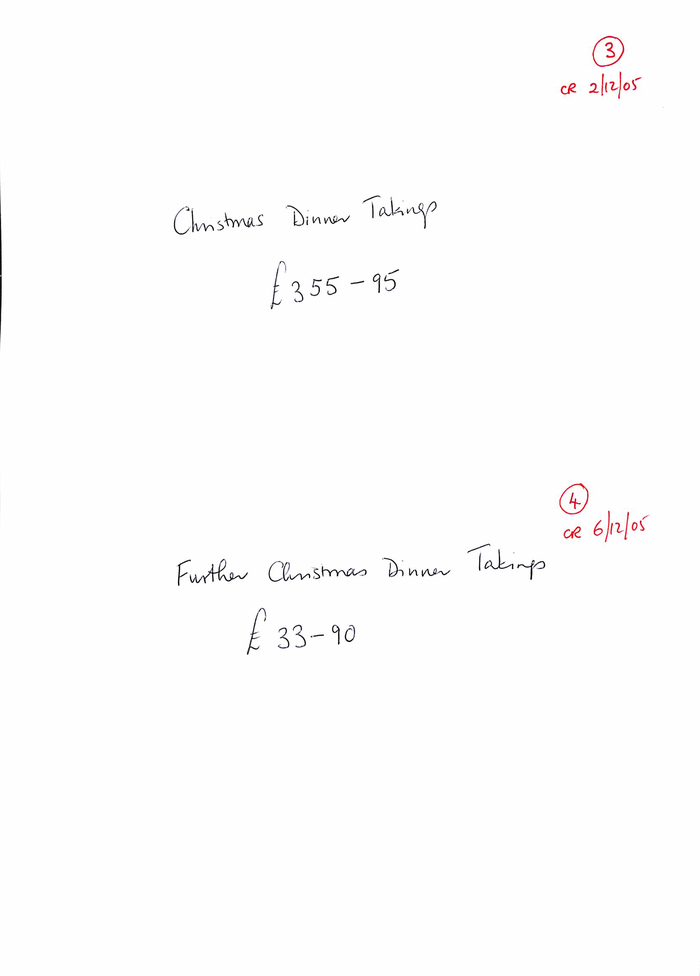 3
CR 2/12/05
Christmas Dinner Takings
£355-95
4
CR 6/12/05
Further Christmas Dinner Takings
£33-90